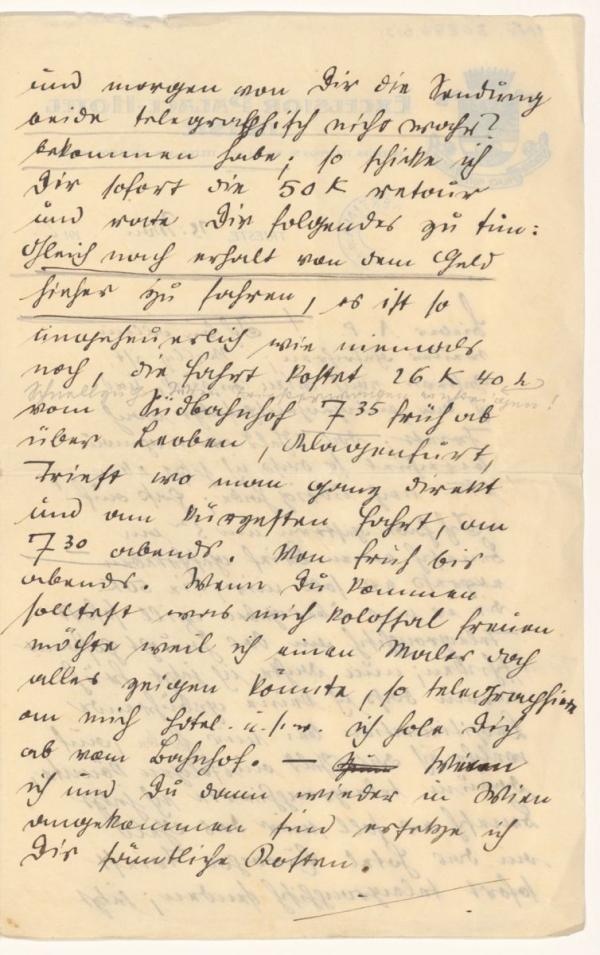 und morgen von Dir die Sendung
beide telegraphisch nicht wahr?
bekommen habe; so schicke ich
Dir sofort die 50 K retour
und rate Dir folgendes zu tun:
Gleich nach erhalt von dem Geld
hieher zu fahren, es ist so
ungeheuerlich wie niemals
noch, die fahrt kostet 26 K 40 h
vom Südbahnhof 7 35 früh ab
über Leoben, Klagenfurt,
Triest wo man ganz direkt
und am kürzesten fahrt, an
7 30 abends. Von früh bis
abends. Wenn Du kommen
solltest was mich kolossal freuen
möchte weil ich einen Maler doch
alles zeigen könnte, so telegraphiere
an mich Hotel. u.s.w. ich hole Dich
ab vom Bahnhof. — Wenn
ich und Du dann wieder in Wien
angekommen sind ersetze ich
Dir sämtliche Kosten.